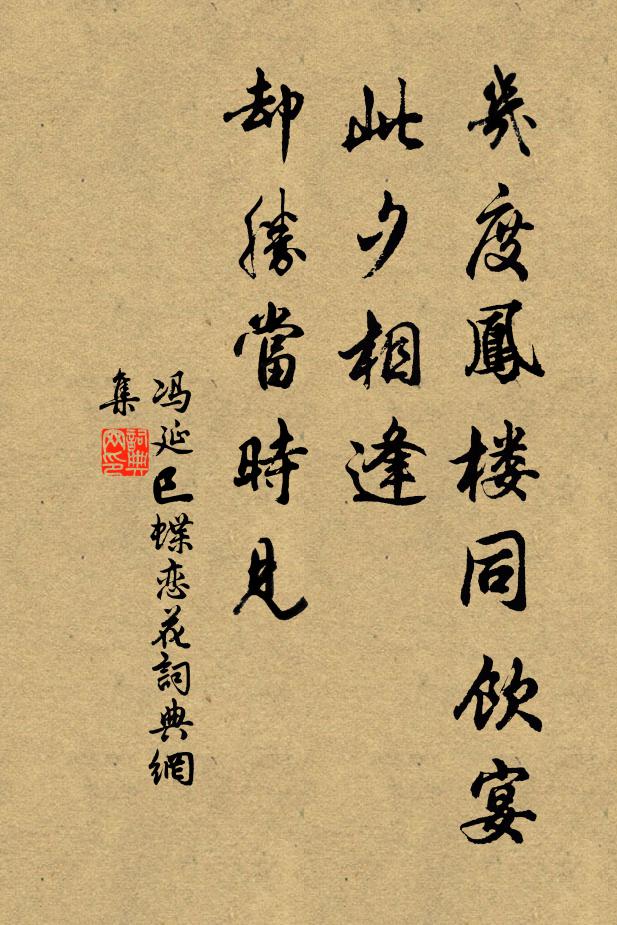 幾度鳳楼同飲宴
此夕相逢
却勝當時見
冯延巳蝶恋花詞典網
集
詞典網印